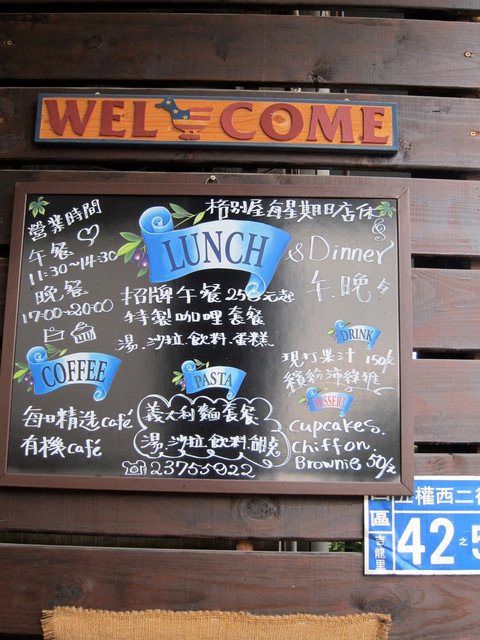 WELCOME
格別屋每星期日店休
營業時間
午餐
11:30~14:30
晚餐
17:00~20:00
LUNCH
& Dinner
午.晚
招牌午餐 250元起
特製咖哩套餐
湯.沙拉.飲料.蛋糕
DRINK
現打果汁 150元
繽紛沛綠雅
COFFEE
每日精选café
有機café
PASTA
義大利麵套餐
湯.沙拉.飲料.
DESSERT
cupcakes.
chiffon.
Brownie 50/元
☏23755922
五權西二街
區
吉龍里
42之5